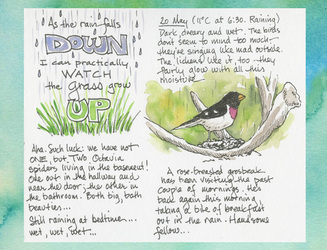 As the rain falls
DOWN
I can practically
WATCH
the Grass grow
UP
Aha. Such luck: we have not
ONE, but Two Octavia
spiders living in the basement!
One out in the hallway and
near the door; the other in
the bathroom. Both big, both
beauties...
Still raining at bedtime...
wet, wet, wet...
20 May (11°C at 6:30. Raining)
Dark, dreary and wet. The birds
don't seem to mind too much—
they're singing like mad outside.
The lichens like it, too—they
fairly glow with all this
moisture.
A rose-breasted grosbeak
has been visiting the past
couple of mornings. He's
back again this morning
taking a bite of breakfast
out in the rain. Handsome
fellow...